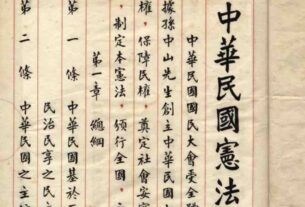 中華民國憲法
中華民國國民大會受全
據孫中山先生創立中華民國
權，保障民權，奠定社會安
，制定本憲法，頒行全國，
第一章　總綱
第一條　中華民國基於
民治民享之民
第二條　中華民國之主